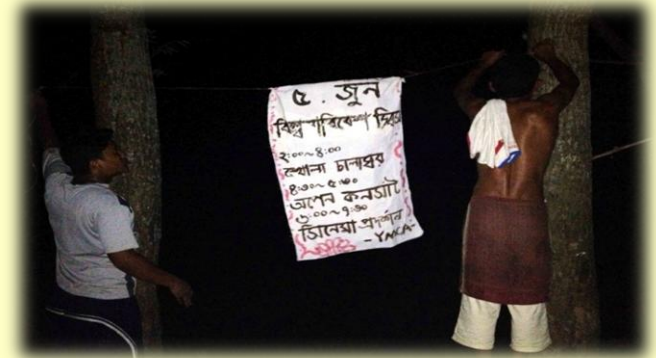 ৫. জুন
বিশ্ব পরিবেশ দিবস
২:০০~৪:০০
খোলা চালাঘর
৪:৩০~৫:৩০
অপেন কনসার্ট
৬:০০~৭:৩০
সিনেমা প্রদর্শন
-YMCA-